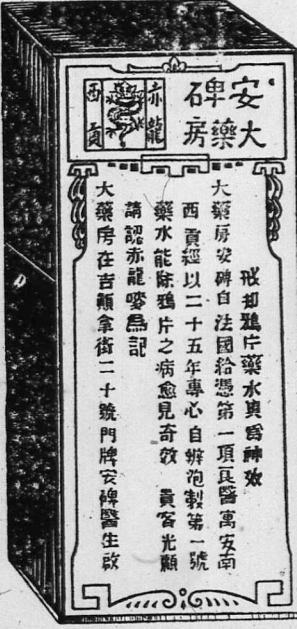 安碑
大藥房
赤龍
西貢
戒却鴉片藥水爲神效
大藥房安碑自法國給憑第一項良醫寓安南
西貢經以二十五年專心自辦泡製第一號
藥水能除鴉片之病愈見奇效 貴客光顧
請認赤龍嘜爲記
大藥房在吉顛拿街二十號門牌安碑醫生啟